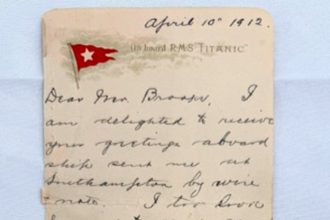 April 10th 1912.
On board R.M.S. TITANIC
Dear Mr. I
am delighted to receive
your greetings aboard
ship sent me at
Southampton by wire
+ note. I too